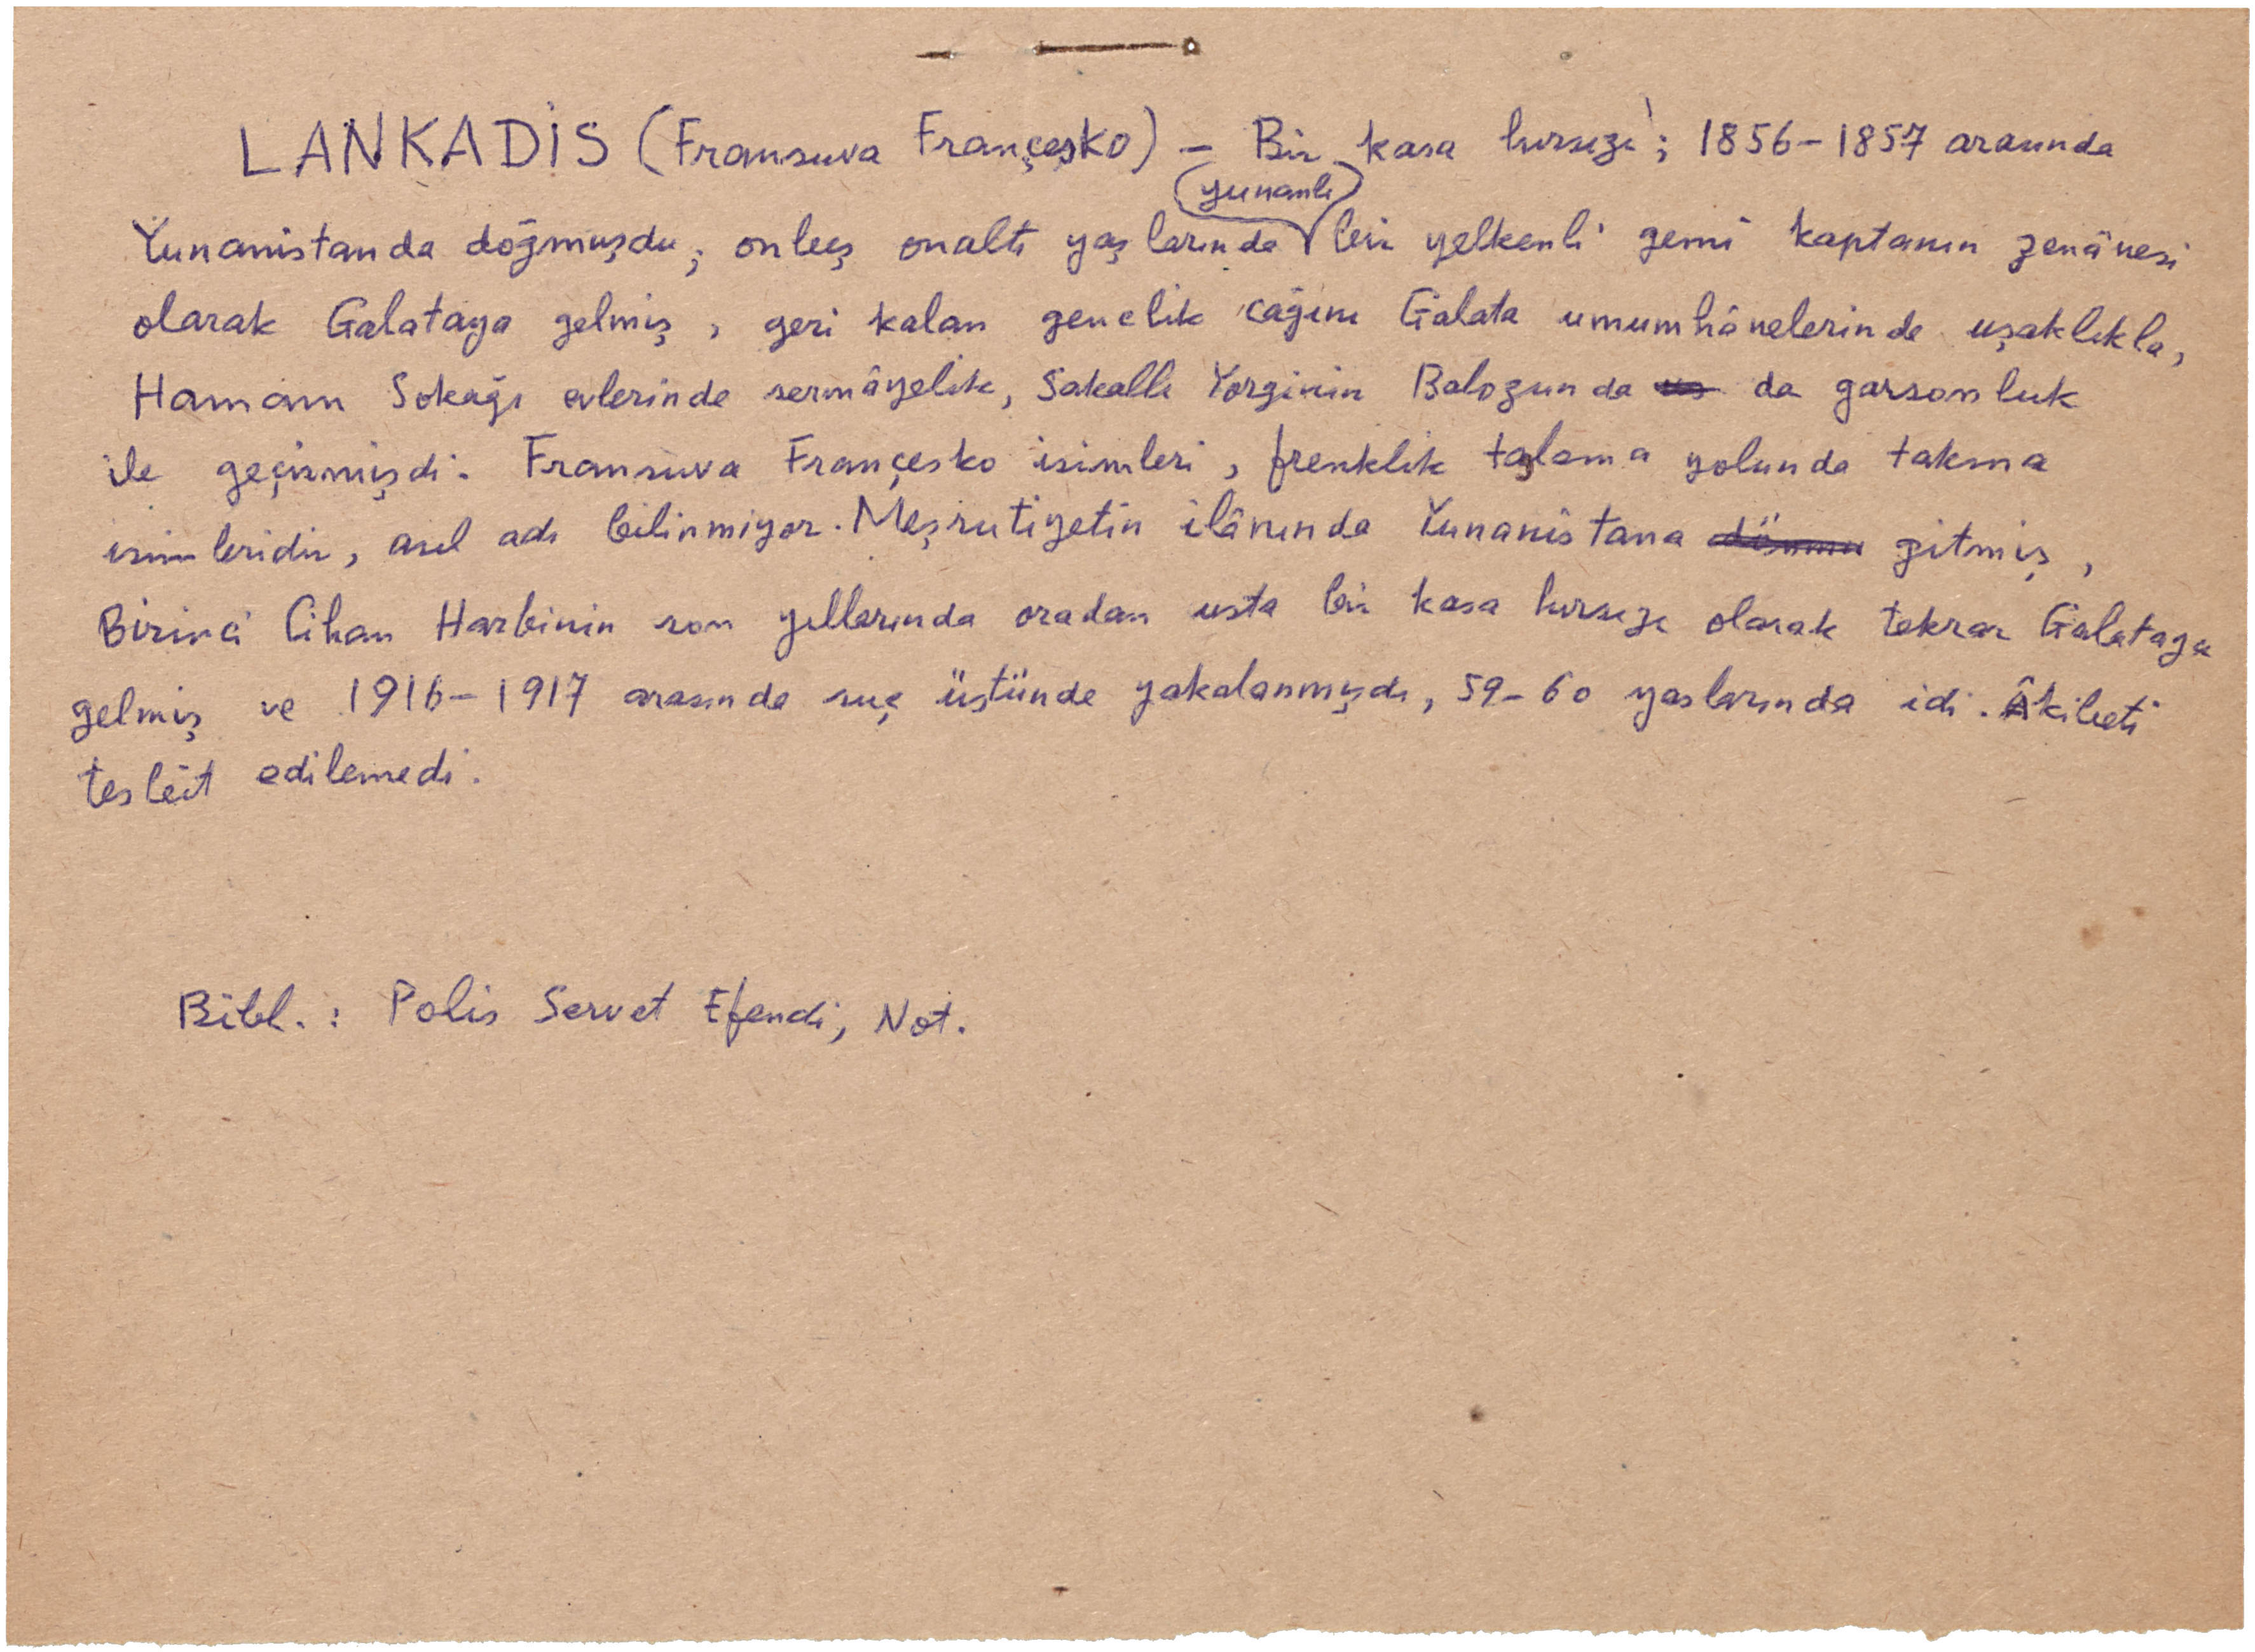 LANKADİS (Fransuva Françesko) – Bir kasa hırsızı; 1856–1857 arasında
Yunanistanda doğmuşdu; onbeş onaltı yaşlarında yunanlı bir yelkenli gemi kaptanın zenânesi
olarak Galataya gelmiş, geri kalan genclik cağını Galata umumhânelerinde uşaklıkla,
Hamam Sokağı evlerinde sermâyelik, Sakallı Yorginin Balozunda da garsonluk
ile geçirmişdi. Fransuva Françesko isimleri, frenklik taslama yolunda takma
isimleridir, asıl adı bilinmiyor. Meşrutiyetin ilânında Yunanistana gitmiş,
Birinci Cihan Harbinin son yıllarında oradan usta bir kasa hırsızı olarak tekrar Galataya
gelmiş ve 1916–1917 arasında suç üstünde yakalanmışdı, 59–60 yaslarında idi. Âkibeti
tesbit edilemedi.
Bibl.: Polis Servet Efendi, Not.